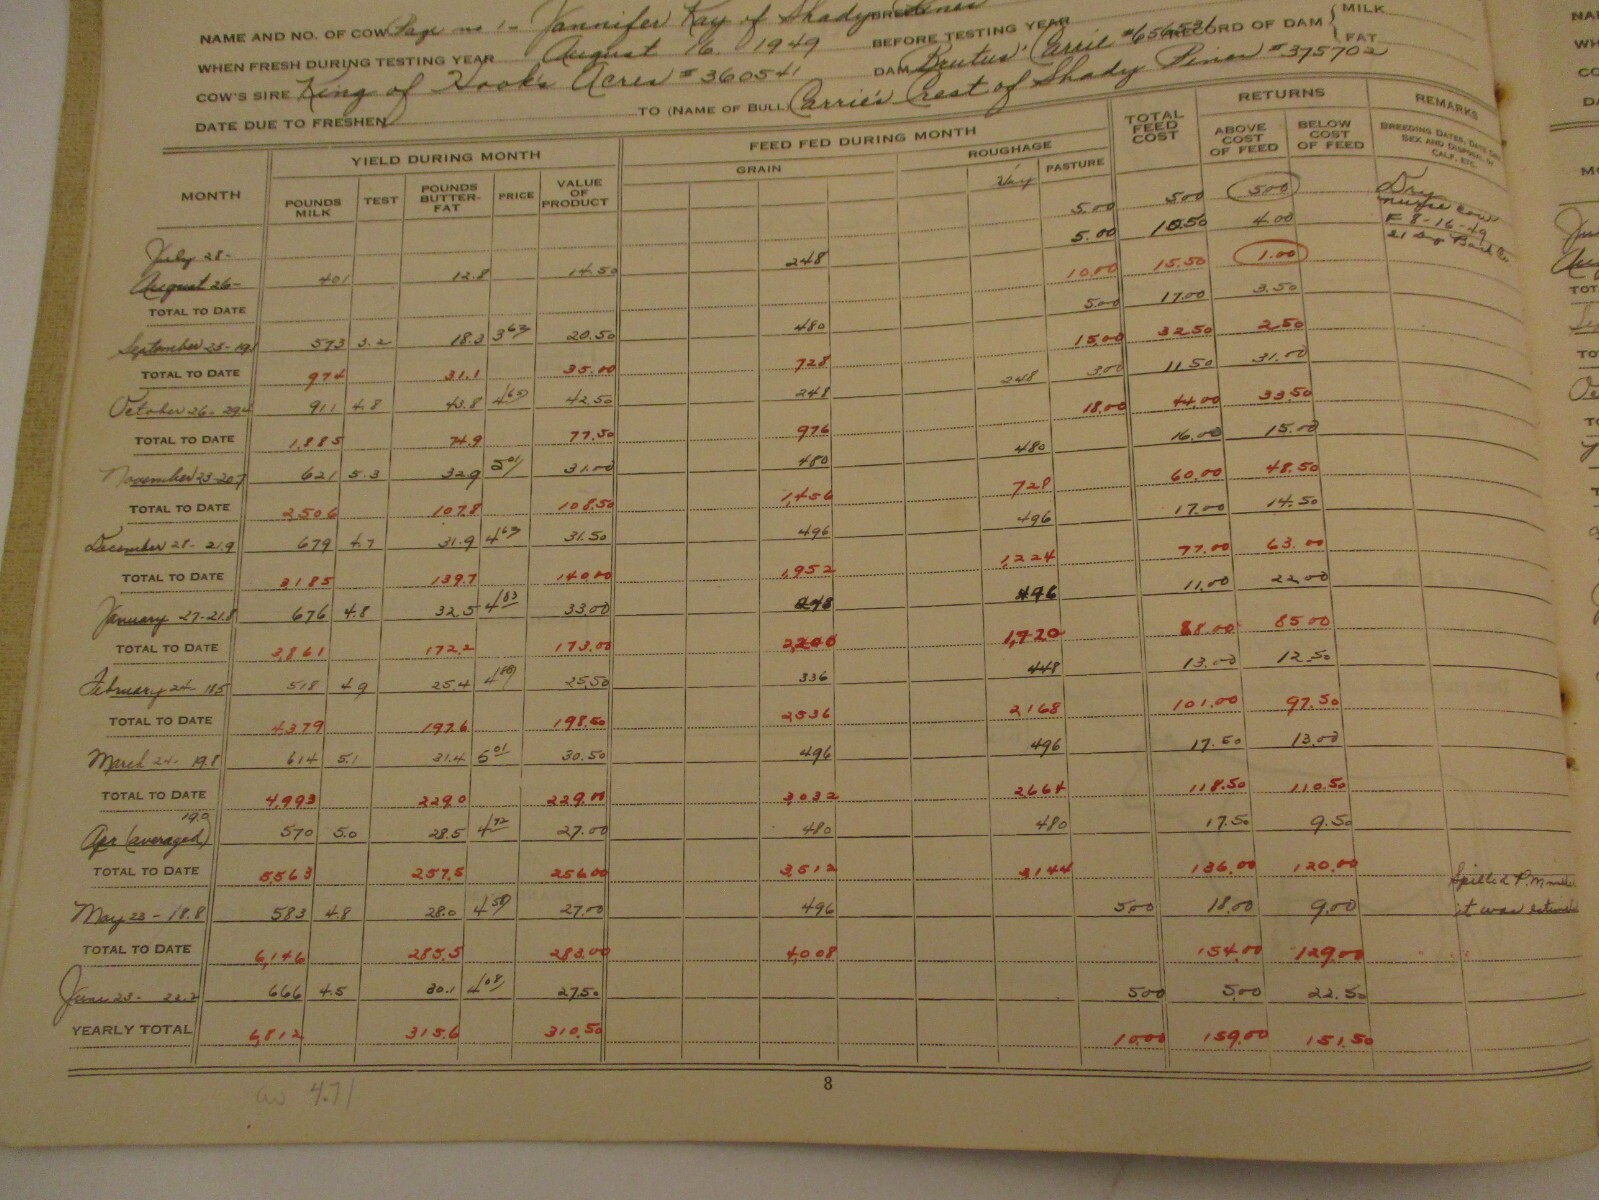 NAME AND NO. OF COW Page no 1- Jannifer Kay of Shady Pines BREED
WHEN FRESH DURING TESTING YEAR August 16 1949 BEFORE TESTING YEAR RECORD OF DAM { MILK
COW'S SIRE King of Hook's Acres #360541 DAM Brutus' Carrie #656531 FAT
DATE DUE TO FRESHEN TO (NAME OF BULL) Carrie's Crest of Shady Pines #375702
MONTH YIELD DURING MONTH FEED FED DURING MONTH TOTAL FEED COST RETURNS REMARKS
POUNDS MILK TEST POUNDS BUTTER-FAT PRICE VALUE OF PRODUCT GRAIN ROUGHAGE Hay PASTURE ABOVE COST OF FEED BELOW COST OF FEED BREEDING DATES, DATE DRY SEX AND DISPOSAL OF CALF, ETC.
July 28- 5.00 5.00 5.00 Dry nurse cow
August 26- 401 12.8 14.50 248 5.00 10.50 4.00 F 8-16-49
TOTAL TO DATE 10.00 15.50 1.00
September 25-19 573 3.2 18.3 3 63 20.50 480 5.00 17.00 3.50
TOTAL TO DATE 974 31.1 35.00 728 15.00 32.50 2.50
October 26- 29.4 911 4.8 43.8 4 65 42.50 248 248 3.00 11.50 31.00
TOTAL TO DATE 1,885 74.9 77.50 976 18.00 44.00 33.50
November 23-20.7 621 5.3 32.9 5 01 31.00 480 480 16.00 15.00
TOTAL TO DATE 2,506 107.8 108.50 1,456 728 60.00 48.50
December 28- 21.9 679 4.7 31.9 4 63 31.50 496 496 17.00 14.50
TOTAL TO DATE 3185 139.7 140.00 1,952 1,224 77.00 63.00
January 27-21.8 676 4.8 32.5 4 83 33.00 248 496 11.00 22.00
TOTAL TO DATE 3,861 172.2 173.00 2,200 1,720 88.00 85.00
February 24- 18.5 518 4.9 25.4 25.50 336 448 13.00 12.50
TOTAL TO DATE 4,379 197.6 198.50 2536 2168 101.00 97.50
March 24- 19.8 614 5.1 31.4 5 01 30.50 496 496 17.50 13.00
TOTAL TO DATE 4,993 229.0 229.00 3,032 2664 118.50 110.50
Apr (averaged) 19.0 570 5.0 28.5 4 72 27.00 480 480 17.50 9.50
TOTAL TO DATE 5563 257.5 256.00 3,512 3144 136.00 120.00
May 23 - 18.8 583 4.8 28.0 4 58 27.00 496 5.00 18.00 9.00 Spilled P.M milk it was
TOTAL TO DATE 6,146 285.5 283.00 4,008 154.00 129.00
June 23- 22.2 666 4.5 30.1 4 08 27.50 5.00 5.00 22.50
YEARLY TOTAL 6,812 315.6 310.50 10.00 159.00 151.50
8
av 4.71